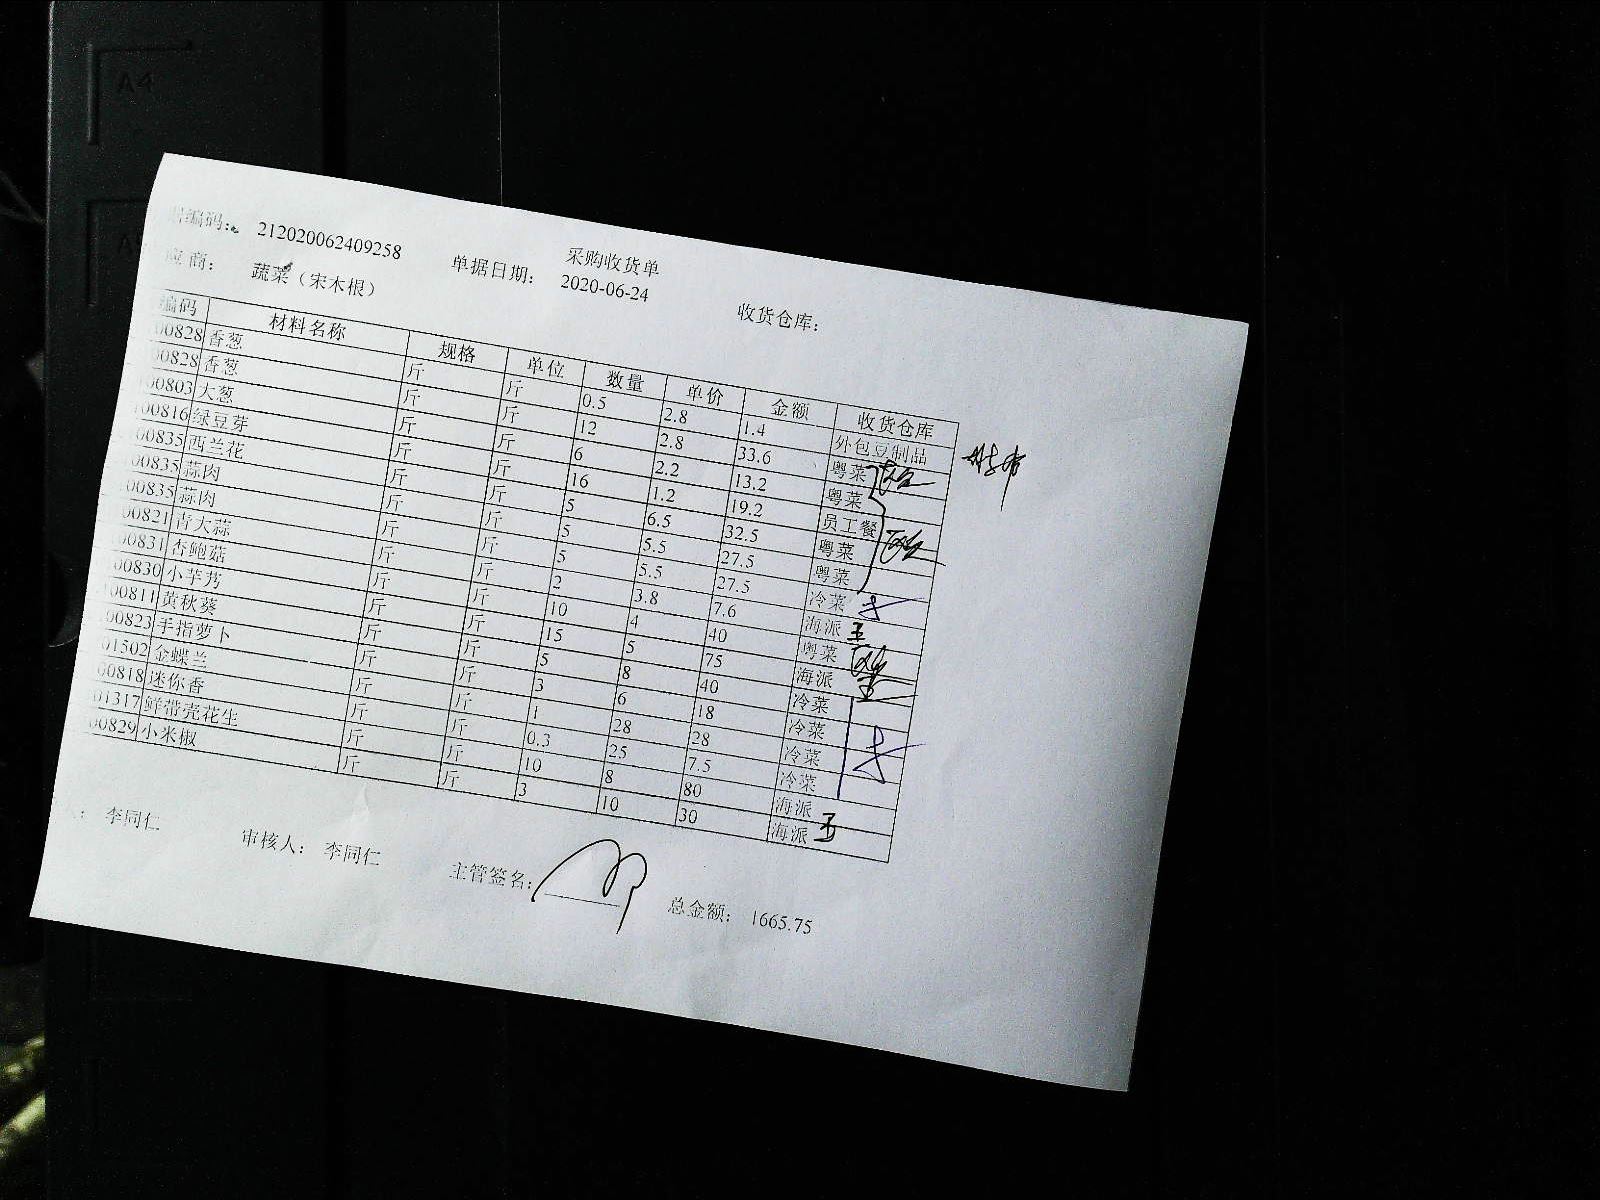 采购收货单
编码: 212020062409258 单据日期: 2020-06-24 收货仓库:
应商: 蔬菜（宋木根）
编码 材料名称 规格 单位 数量 单价 金额 收货仓库
00828 香葱 斤 斤 0.5 2.8 1.4 外包豆制品
00828 香葱 斤 斤 12 2.8 33.6 粤菜
00803 大葱 斤 斤 6 2.2 13.2 粤菜
00816 绿豆芽 斤 斤 16 1.2 19.2 员工餐
00835 西兰花 斤 斤 5 6.5 32.5 粤菜
00835 蒜肉 斤 斤 5 5.5 27.5 粤菜
00835 蒜肉 斤 斤 5 5.5 27.5 冷菜
00821 青大蒜 斤 斤 2 3.8 7.6 海派
00831 杏鲍菇 斤 斤 10 4 40 粤菜
00830 小芋艿 斤 斤 15 5 75 海派
00811 黄秋葵 斤 斤 5 8 40 冷菜
00823 手指萝卜 斤 斤 3 6 18 冷菜
01502 金蝶兰 斤 斤 1 28 28 冷菜
00818 迷你香 斤 斤 0.3 25 7.5 冷菜
01317 鲜带壳花生 斤 斤 10 8 80 海派
00829 小米椒 斤 斤 3 10 30 海派
: 李同仁 审核人: 李同仁 主管签名: 总金额: 1665.75